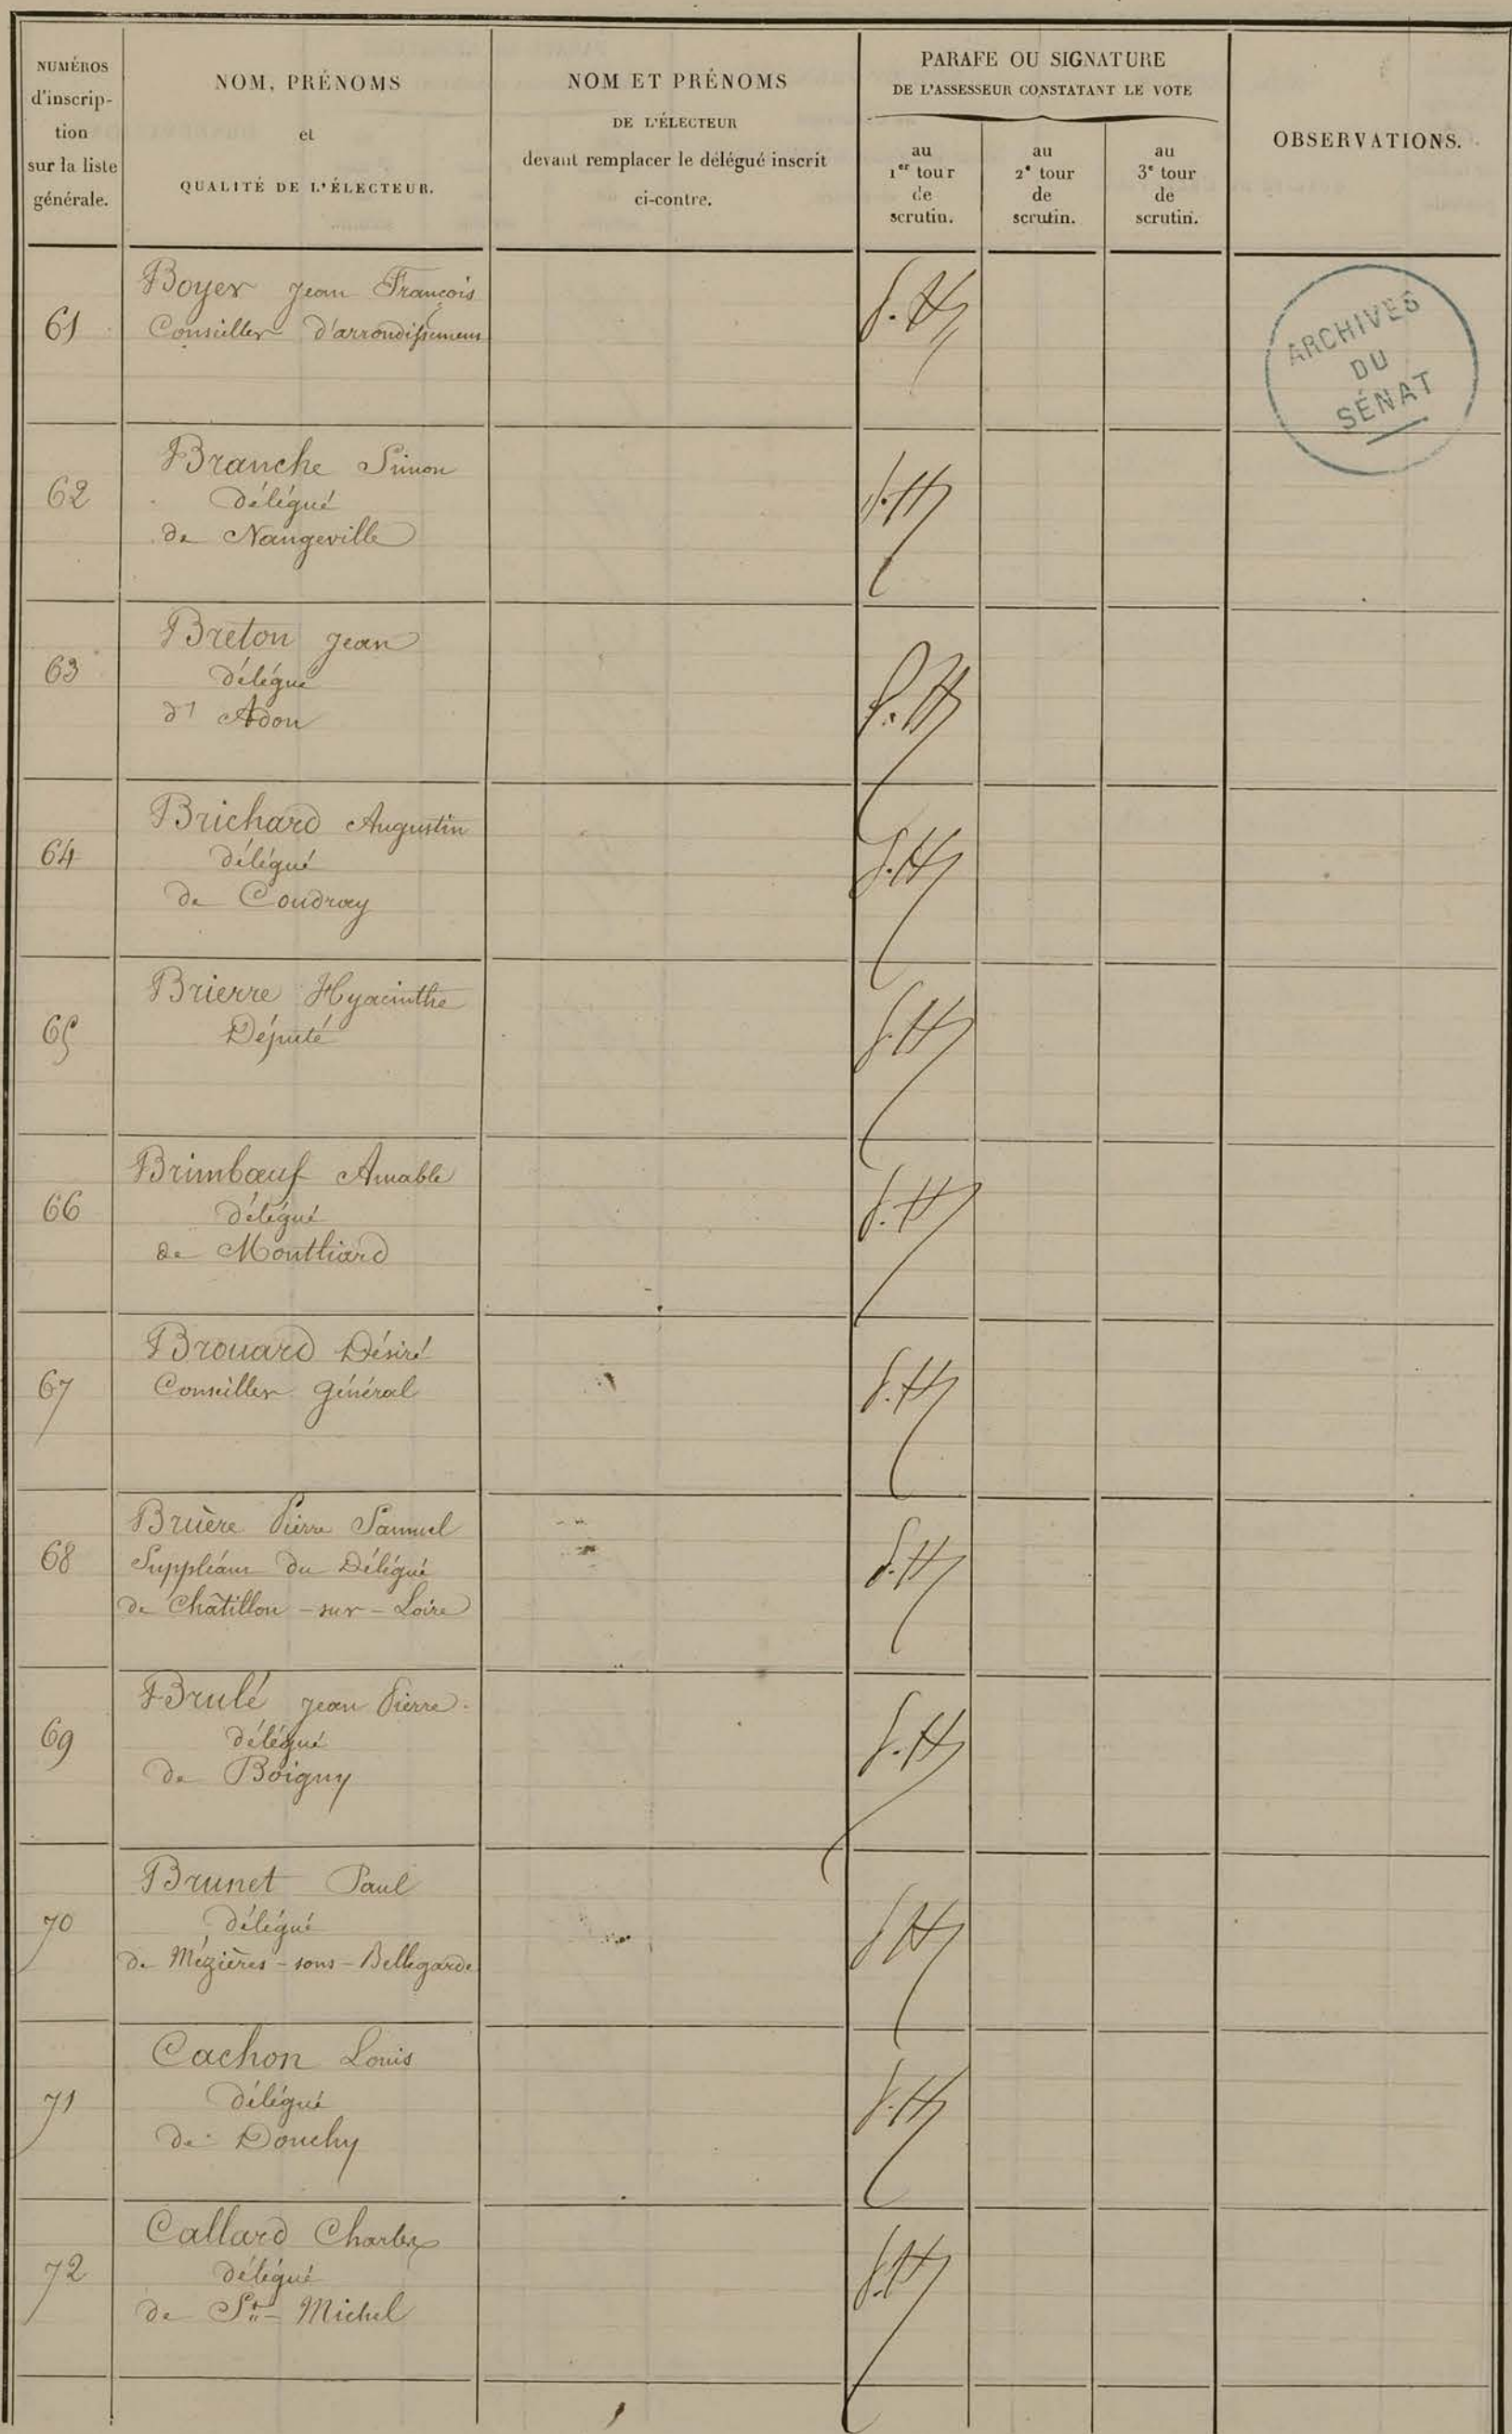 NUMÉROS
d'inscrip-
tion
sur la liste
générale.
NOM, PRÉNOMS
et
QUALITÉ DE L'ÉLECTEUR.
NOM ET PRÉNOMS
DE L'ÉLECTEUR
devant remplacer le délégué inscrit
ci-contre.
PARAFE OU SIGNATURE
DE L'ASSESSEUR CONSTATANT LE VOTE
au
1er tour
de
scrutin.
au
2e tour
de
scrutin.
au
3e tour
de
scrutin.
OBSERVATIONS.
ARCHIVES
DU
SÉNAT
61
Boyer Jean François
Conseiller d'arrondissement
62
Branche Simon
délégué
de Nangeville
63
Breton Jean
délégué
d'Adon
64
Brichard Augustin
délégué
de Coudray
65
Brierre Hyacinthe
Député
66
Brimbœuf Amable
délégué
de Monthiard
67
Brouard Désiré
Conseiller général
68
Bruère Pierre Samuel
Suppléant du Délégué
de Châtillon-sur-Loire
69
Brulé Jean Pierre
délégué
de Boigny
70
Brunet Paul
délégué
de Mézières-sous-Bellegarde
71
Cachon Louis
délégué
de Douchy
72
Callard Charles
délégué
de St-Michel